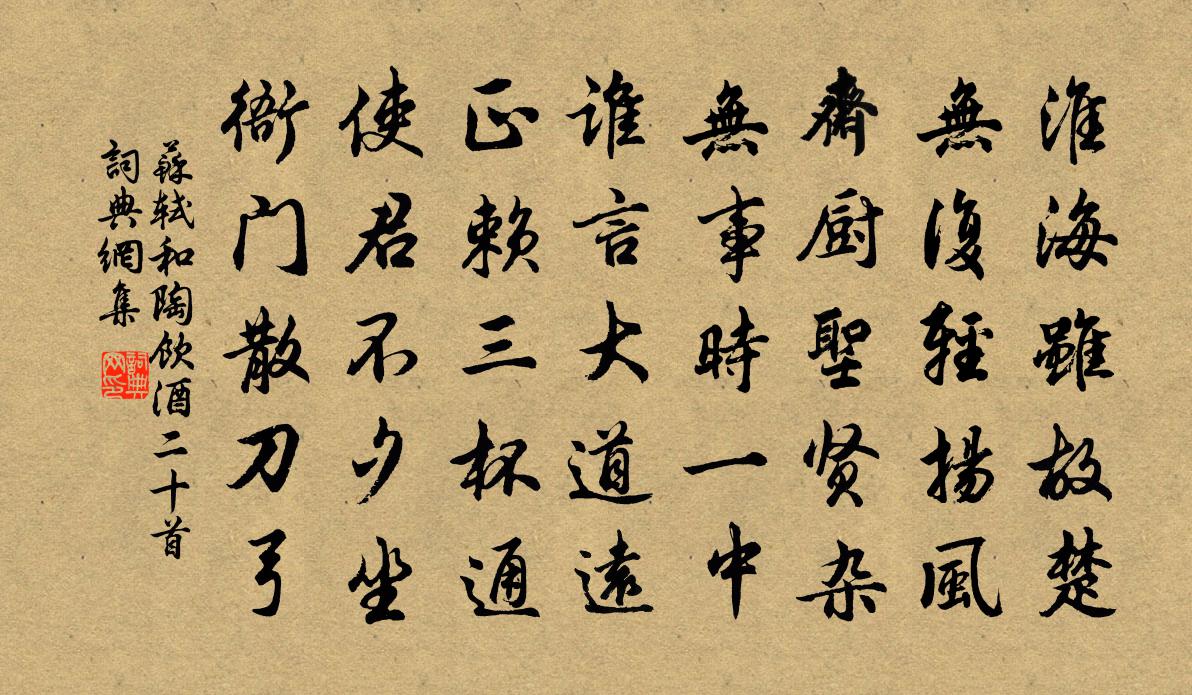 淮海雖故楚
無復輕揚風
齋廚聖贤杂
無事時一中
谁言大道遠
正赖三杯通
使君不夕坐
衙門散刀弓
蘇軾和陶飲酒二十首
詞典網集